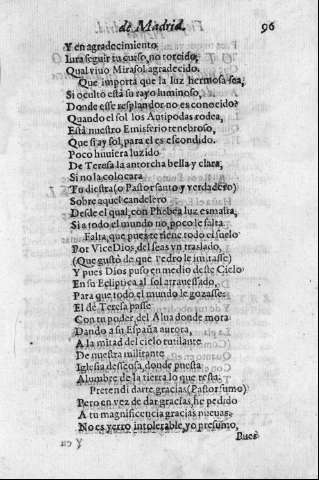 de Madrid. 96
Y en agradecimiento,
Iura seguir tu curso, no torcido,
Qual viuo Mirasol agradecido.
Que importa que la luz hermosa sea,
Si oculto está su rayo luminoso,
Donde esse resplandor no es conocido?
Quando el sol los Antipodas rodea,
Está nuestro Emisferio tenebroso,
Que si ay sol, para el es escondido.
Poco huuiera luzido
De Teresa la antorcha bella y clara,
Si no la colocara
Tu diestra (o Pastor santo y verdadero)
Sobre aquel candelero
Desde el qual, con Phebea luz esmalta,
Si a todo el mundo no, poco le falta.
Falta, que pues te tiene todo el suelo
Por Vice Dios, del seas vn traslado,
(Que gustò de que Pedro le imitasse)
Y pues Dios puso en medio deste Cielo
En su Ecliptica al sol atrauessado,
Para que todo el mundo le gozasse:
El de Teresa passe
Con tu poder, del Alua donde mora
Dando a su España aurora,
A la mitad del cielo rutilante
De nuestra militante
Iglesia desseosa, donde puesta
Alumbre de la tierra lo que resta.
Pretendi darte gracias (Pastor sumo)
Pero en vez de dar gracias, he pedido
A tu magnificencia gracias nueuas.
No es yerro intolerable, yo presumo,
Pues